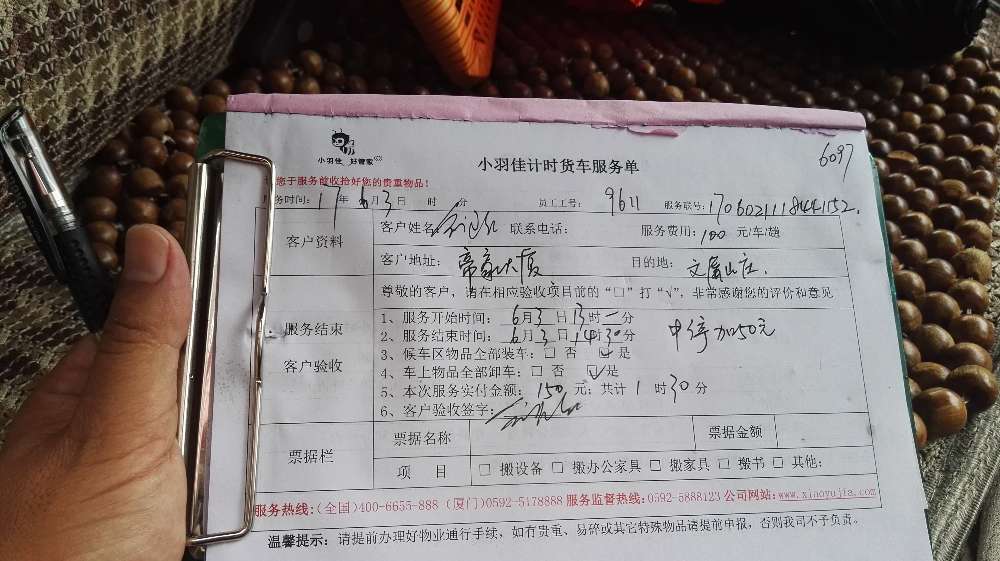 6097
小羽佳 好管家
小羽佳计时货车服务单
您于服务前收拾好您的贵重物品!
务时间: 17年6月3日 时 分 员工工号: 9611 服务联号: 170602111844152
客户资料 客户姓名: 联系电话: 服务费用: 100 元/车/趟
客户地址: 帝豪大厦 目的地: 文屏山庄
尊敬的客户,请在相应验收项目前的“□”打“√”,非常感谢您的评价和意见
服务结束
客户验收
1、服务开始时间: 6月3日13时 分
2、服务结束时间: 6月3日14时30分 中停加50元
3、候车区物品全部装车: □ 否 ☑是
4、车上物品全部卸车: □ 否 ☑是
5、本次服务实付金额: 150 元; 共计 1 时 30 分
6、客户验收签字:
票据栏 票据名称 票据金额
项 目 □ 搬设备 □ 搬办公家具 □ 搬家具 □ 搬书 □ 其他:
服务热线:(全国)400-6655-888 (厦门)0592-5178888 服务监督热线:0592-5888123 公司网站:www.xiaoyujia.com
温馨提示: 请提前办理好物业通行手续,如有贵重、易碎或其它特殊物品请提前申报,否则我司不予负责。